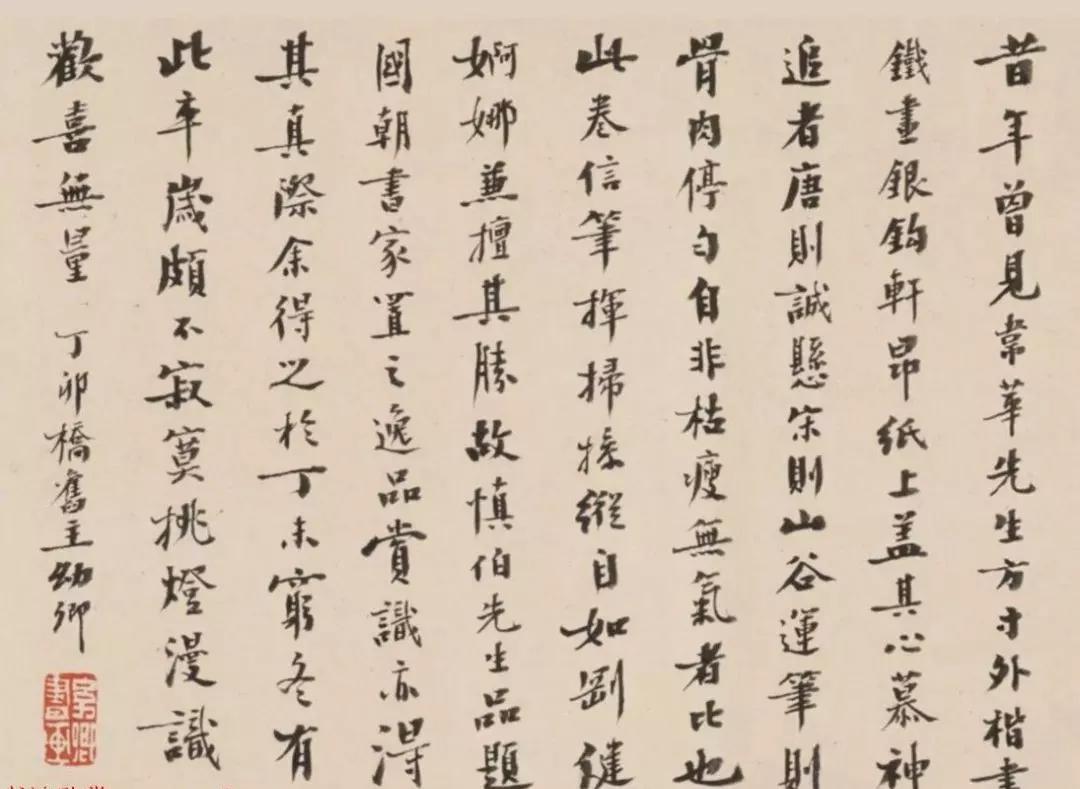 昔年曾見韋華先生方寸外楷書
鐵畫銀鉤軒昂紙上蓋其心慕神
追者唐則誠懸宋則山谷運筆則
骨肉停勻自非枯瘦無氣者比也
此卷信筆揮掃操縱自如剛健
婀娜兼擅其勝故慎伯先生品題
國朝書家置之逸品賞識亦得
其真際余得之於丁未窮冬有
此卒歲頗不寂寞挑燈漫識
歡喜無量 丁卯橋舊主幼卿